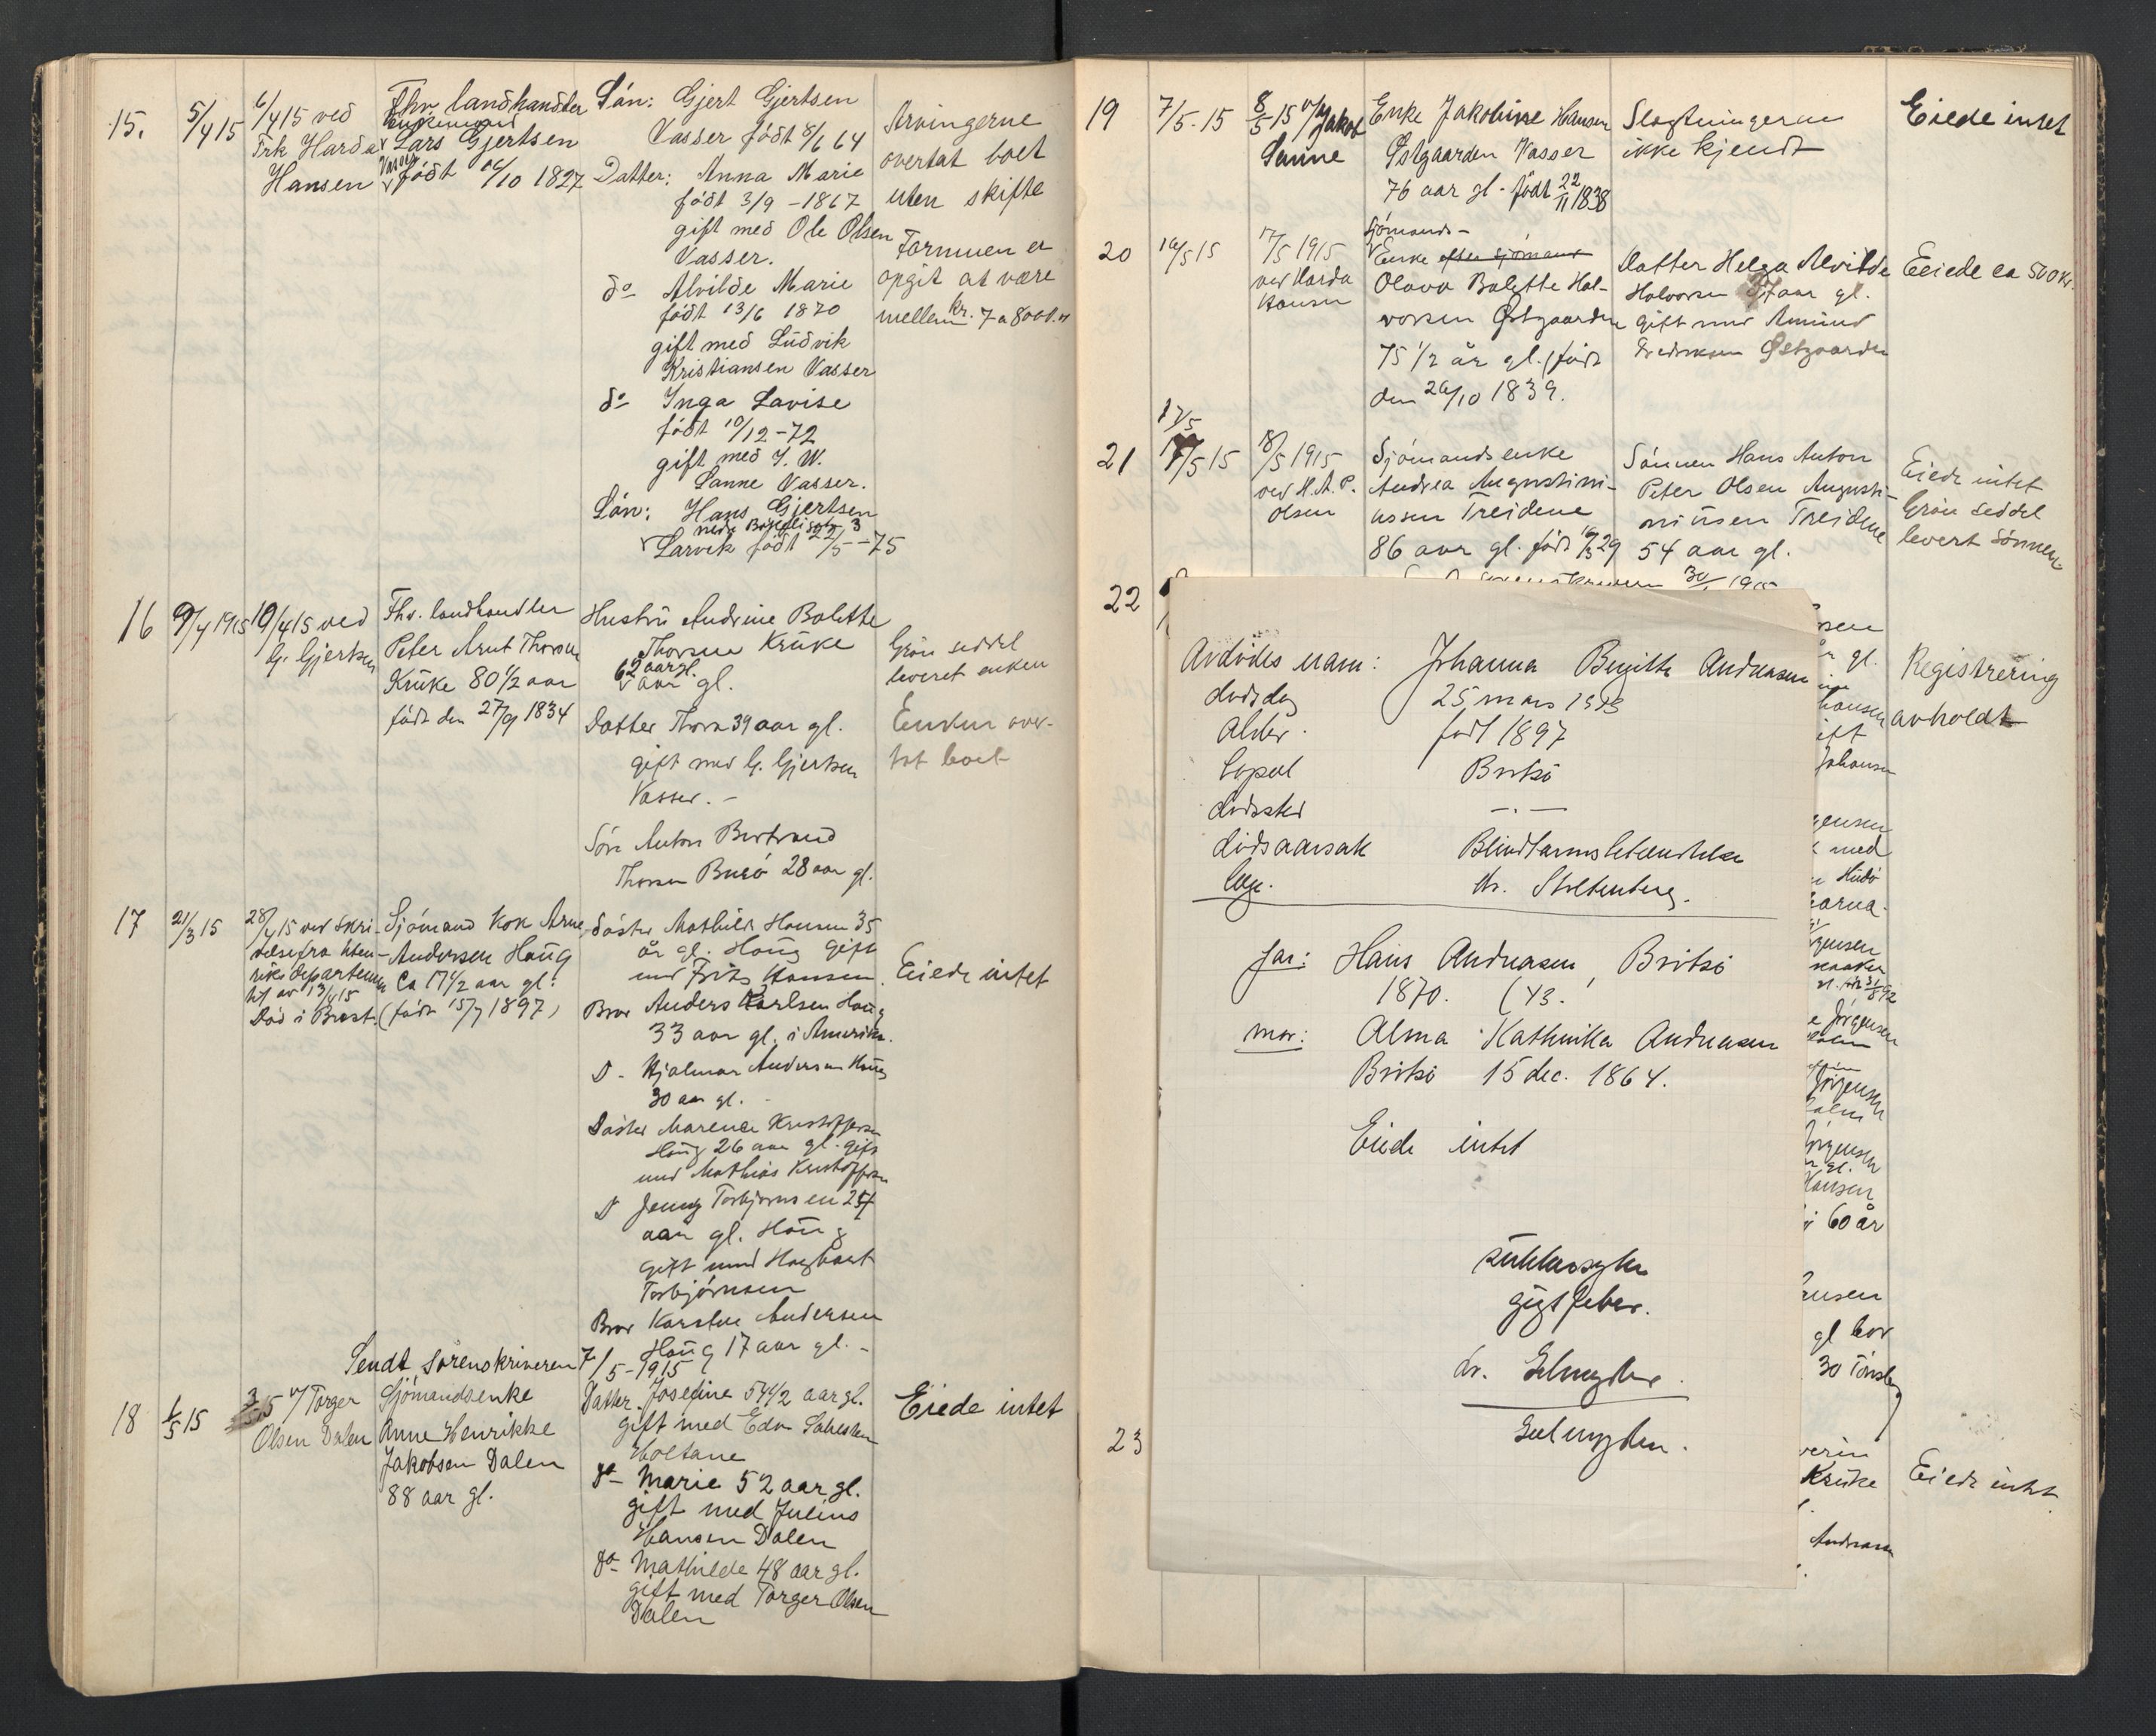 15.
5/4 15
6/4 15 ved
Frk Harda
Hansen
Fhv landhandler
Enkemand
Lars Gjertsen
Vasser
født 16/10 1827
Søn: Gjert Gjertsen
Vasser født 8/6 64
Datter: Anna Marie
født 3/9 - 1867
gift med Ole Olsen
Vasser.
do Alvilde Marie
født 13/6 1870
gift med Ludvik
Kristiansen Vasser
do Inga Lavise
født 10/12 - 72
gift med J. W.
Sanne Vasser.
Søn: Hans Gjertsen
3
Larvik født 22/5 - 75
Arvingerne
overtat boet
uten skifte
Formuen er
opgit at være
mellem kr. 7 a 8000.
16
9/4 1915
10/4 15 ved
G. Gjertsen
Fhv. landhandler
Peter Arnt Thorsen
Krüke 80 1/2 aar
født den 27/9 1834
Hustru Andrine Bolette
Thorsen Krüke
62 aar gl.
aar gl.
Datter Thora 39 aar gl.
gift med G. Gjertsen
Vasser. -
Søn Anton Bertrand
Thorsen Buerø 28 aar gl.
Grøn seddel
leveret enken
Enken over-
tat boet
17
21/3 15
28/4 15 ved skri-
velse fra Uten-
riksdepartemen
tet av 13/4 15
Død i Brest.
Sjømand Kok Arne
Andersen Haug
Ca 17 1/2 aar gl.
(født 15/7 1897)
Søster Mathilde Hansen 35
år gl. Haug gift
med Frits Hansen.
Bror Anders Karlsen Haug
33 aar gl. i Amerika.
D - Hjalmar Andersen Haug
30 aar gl. -
Søster Marence Kristoffersen
Haug 26 aar gl. gift
med Mathias Kristoffersen
D Jenny Torbjørnsen 24
aar gl. Haug
gift med Hagbart
Torbjørnsen
Bror Karsten Andersen
Haug 17 aar gl. -
Eiede intet
Sendt sorenskriveren 7/5 - 1915
18
1/5 15
3/5 v/ Torger
Olsen Dalen
Sjömandsenke
Anne Henrikke
Jakobsen Dalen
88 aar gl.
Datter. Josefine 54 1/2 aar gl.
gift med Edv
Holtane
do - Marie 52 aar gl.
gift med Julius
Hansen Dalen
do - Mathilde 48 aar gl.
gift med Torger Olsen
Dalen
Eiede intet
19
7/5. 15
8/5 15 v/ Jakob
Sanne
Enke Jakobine Hansen
Østgaarden Vasser
76 aar gl - født 22/11 1838
Slegtningerne
ikke kjendt
Eiede intet
20
16/5 15
17/5 1915
ved Harda
Hansen
Sjømands-
Enke efter sjømand
Olava Bolette Hal-
vorsen Østgaarden
75 1/2 år gl. (født
den 26/10 1839.
Datter Helga Alvilde
Halvorsen aar gl.
gift med Amund
Fredriksen Østgaarden
Eiede ca 500 kr.
21
17/5
17/5 15
18/5 1915
ved H. A. P.
Olsen
Sjømandsenke
Andrea Augustini-
ussen Treidene
86 aar gl. født 16/3 29
Sønnen Hans Anton
Peter Olsen Augusti-
niusen Treidene
54 aar gl.
Eiede intet
Grøn seddel
levert sønnen
22
30/ 1915
Registrering
avholdt
Avdødes navn: Johanna Birgitte Andreasen
dødsdag 25 mars 1913
Alder. født 1897
bopæl Brøtsø
dødssted - . -
dødsaarsak Blindtarmsbetændelse
læge. dr. Stoltenberg.
far: Hans Andreasen, Brøtsø
1870. (43.
mor: Alma Kathinka Andreasen
Brøtsø 15 dec. 1864.
Eiede intet
gigtfeber.
dr.
gl.
Johansen
med
Jørgensen
Jørgensen
Hansen
60 år
gl bor
30 Tönsberg
23
Krüke
Andreasen
Eiede intet